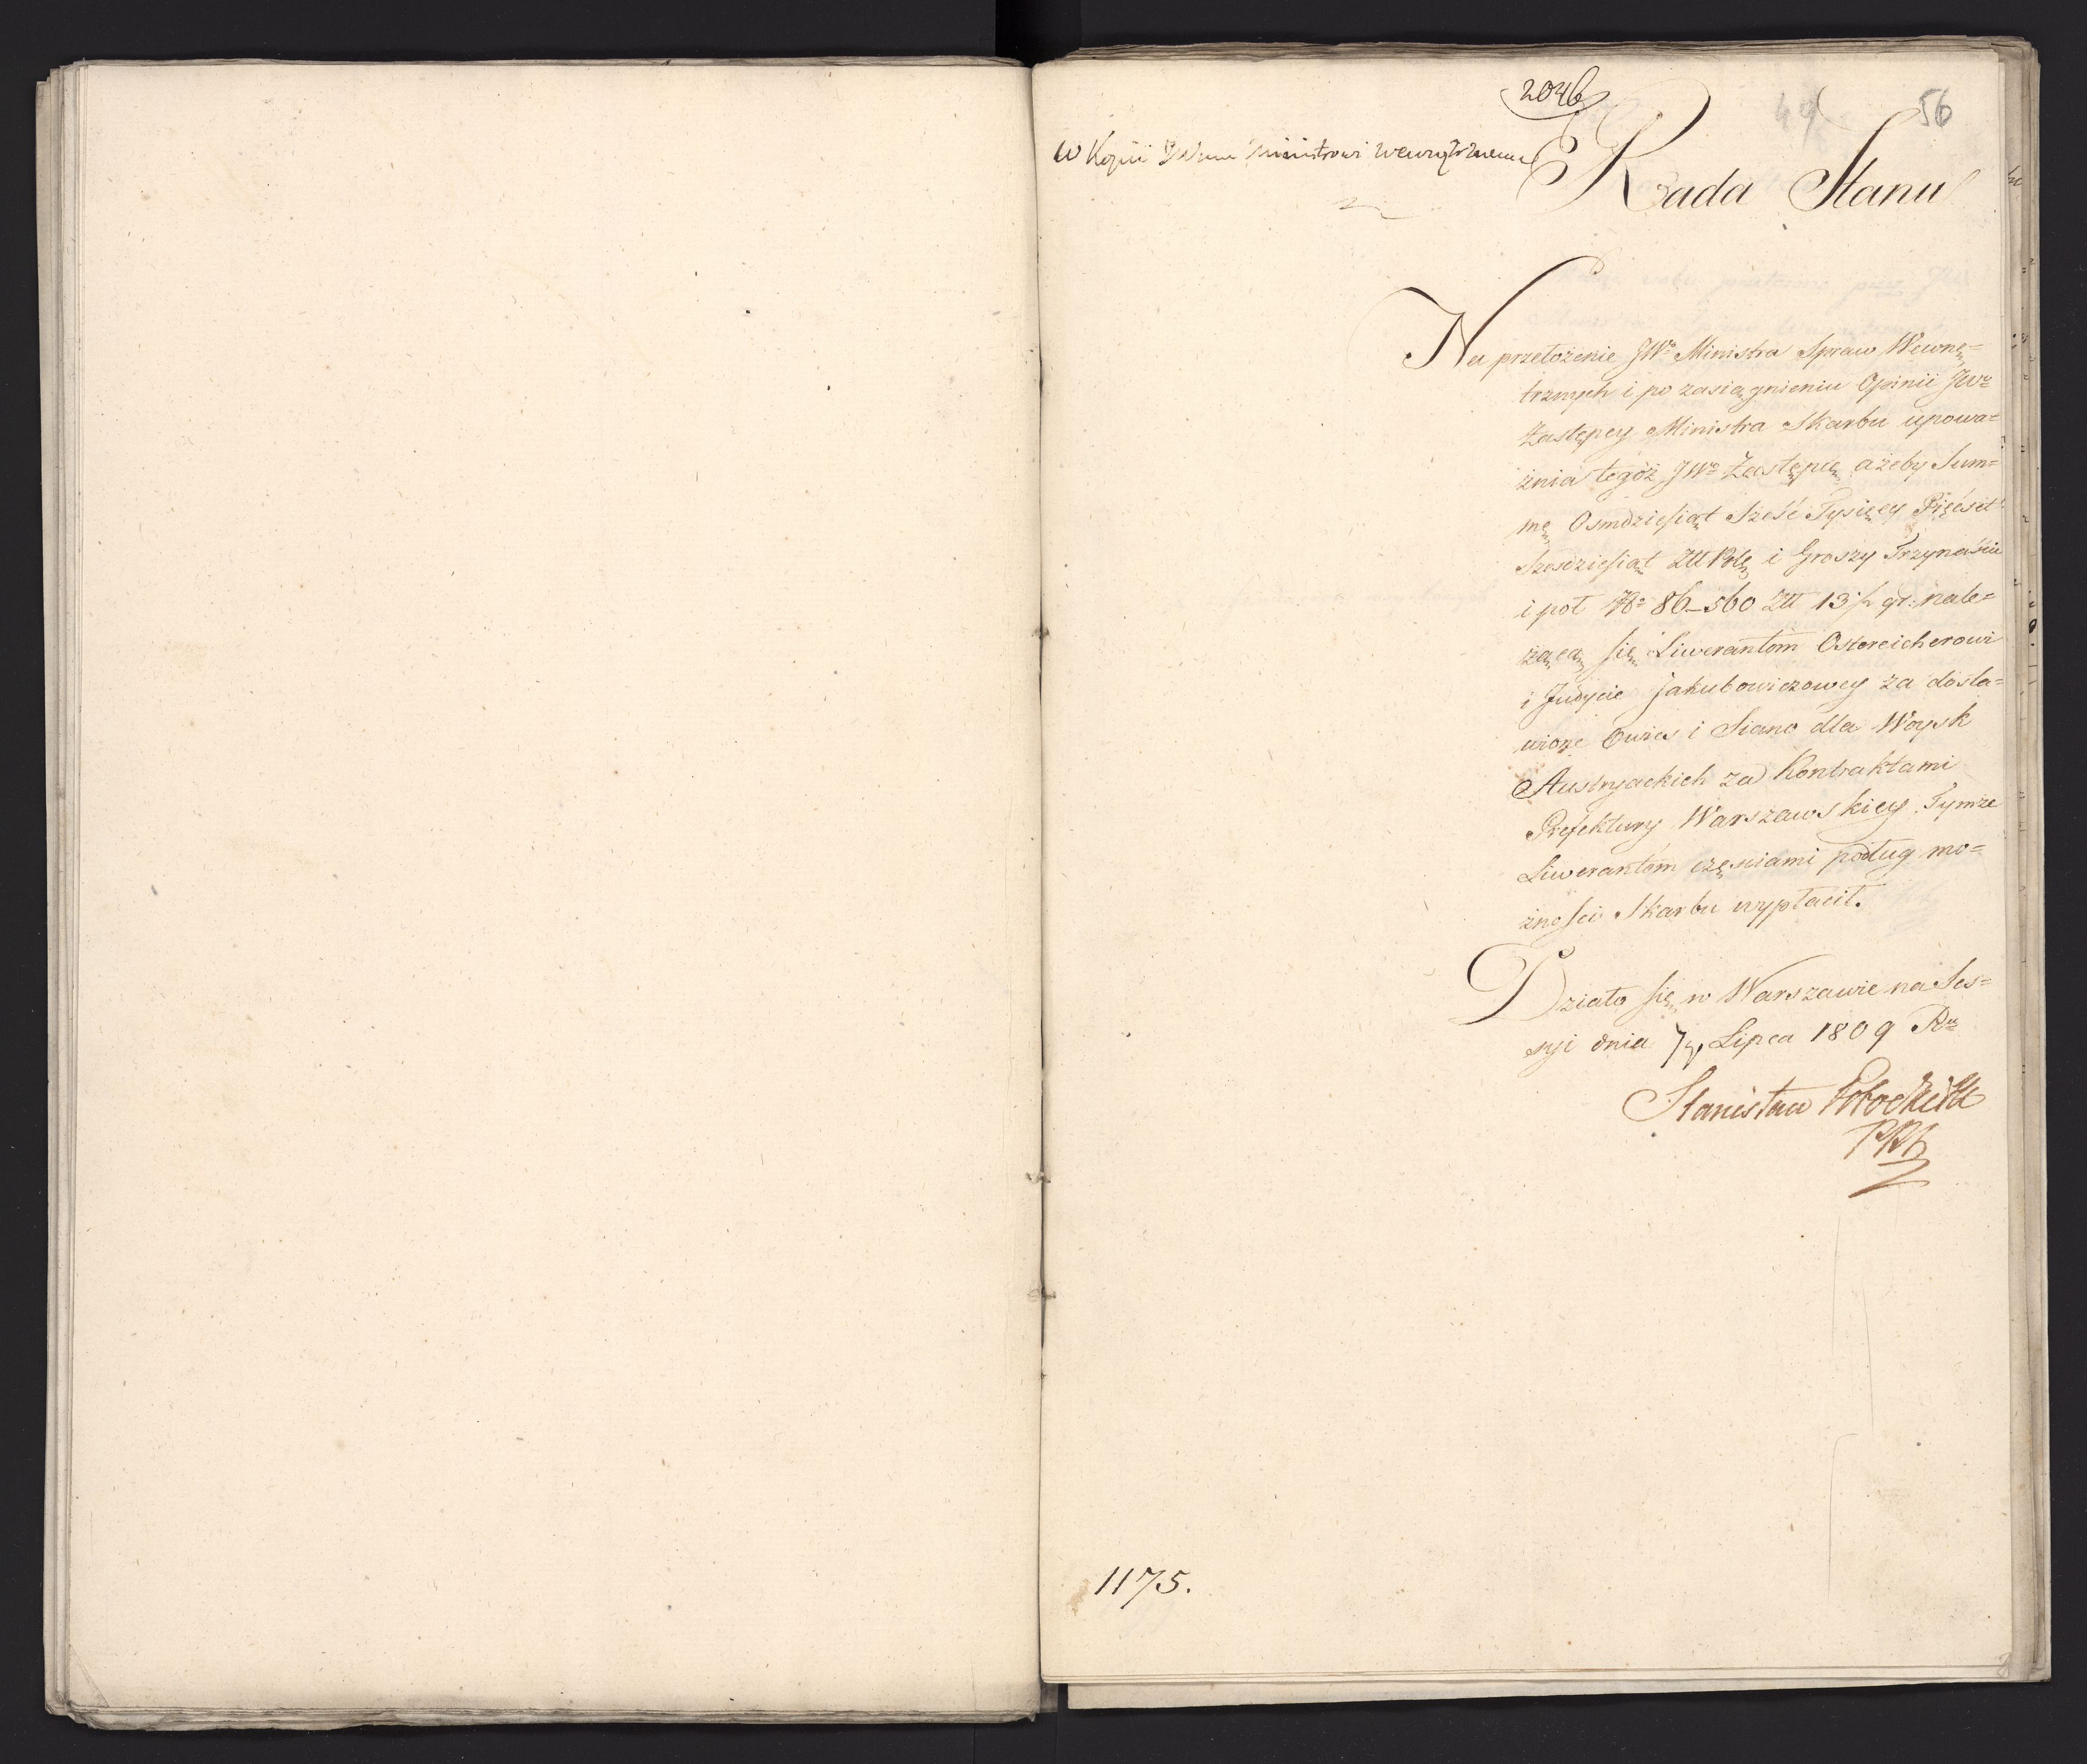 2046
49 56
w Kopii JWmu Ministrowi wewnętrznemu
Rada Stanu
Na przełożenie JWo Ministra Spraw Wewnę=
trznych i po zasiągnieniu Opinii JWo
Zastępcy Ministra Skarbu upowa=
żnia tegóż JWo Zastępcę ażeby Sum=
mę Osmdziesiąt Sześć Tysięcy Pięćset
Szesdziesiąt Złł Polę i Groszy Trzynaście
i poł 86_560 Złł 13½ gr: nale=
żącą się Liwerantom Ostereicherowi
i Judycie Jakubowiczowey za dosta=
wione Owies i Siano dla Woysk
Austryackich za Kontraktami
Prefektury Warszawskiey Tymże
Liwerantom częściami podług mo=
żności Skarbu wypłacił.
Działo się w Warszawie na Ses=
syi dnia 7go Lipca 1809 Ru
Stanisław Potocki
1175.